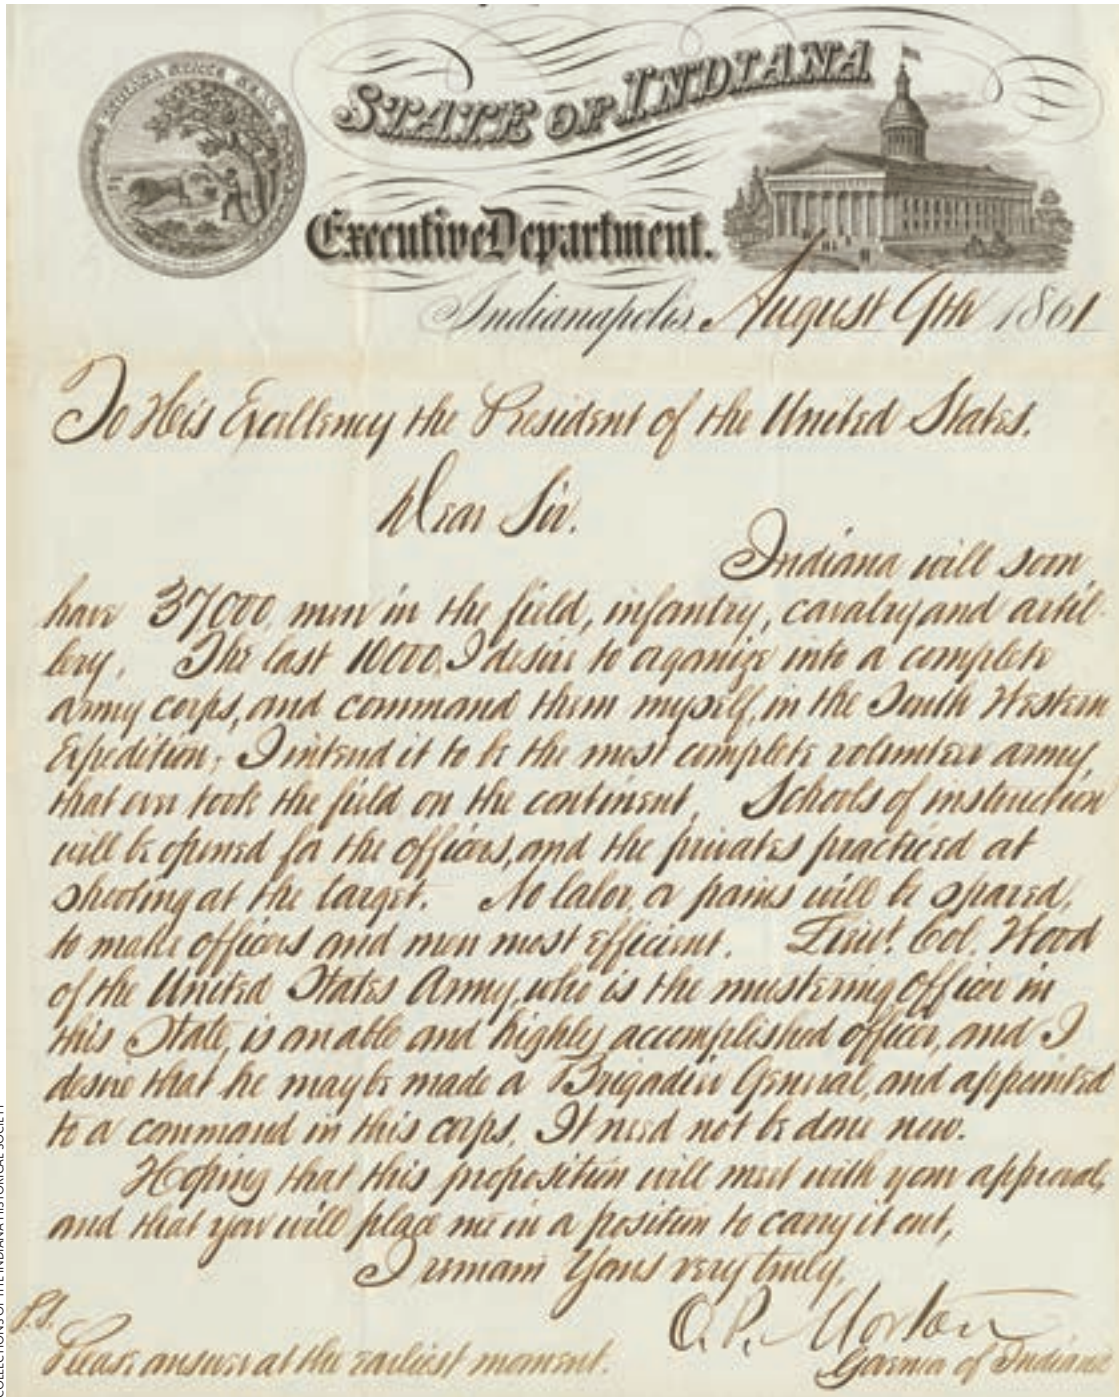 INDIANA STATE SEAL
STATE OF INDIANA
Executive Department.
Indianapolis, August 9th 1861
To His Excellency the President of the United States.
Dear Sir.
Indiana will soon
have 37000 men in the field, infantry, cavalry and artil-
lery. The last 10000, I desire to organize into a complete
army corps, and command them myself, in the South Western
Expedition; I intend it to be the most complete volunteer army,
that ever took the field on the continent. Schools of instruction
will be opened for the officers, and the privates practiced at
shooting at the target. No labor or pains will be spared,
to make officers and men most efficient. Lieut. Col. Wood
of the United States Army, who is the mustering officer in
this State, is an able and highly accomplished officer, and I
desire that he may be made a Brigadier General, and appointed
to a command in this corps. It need not be done now.
Hoping that this proposition will meet with your approval,
and that you will place me in a position to carry it out,
I remain Yours very truly,
O. P. Morton
Governor of Indiana
P.S.
Please answer at the earliest moment.
COLLECTIONS OF THE INDIANA HISTORICAL SOCIETY